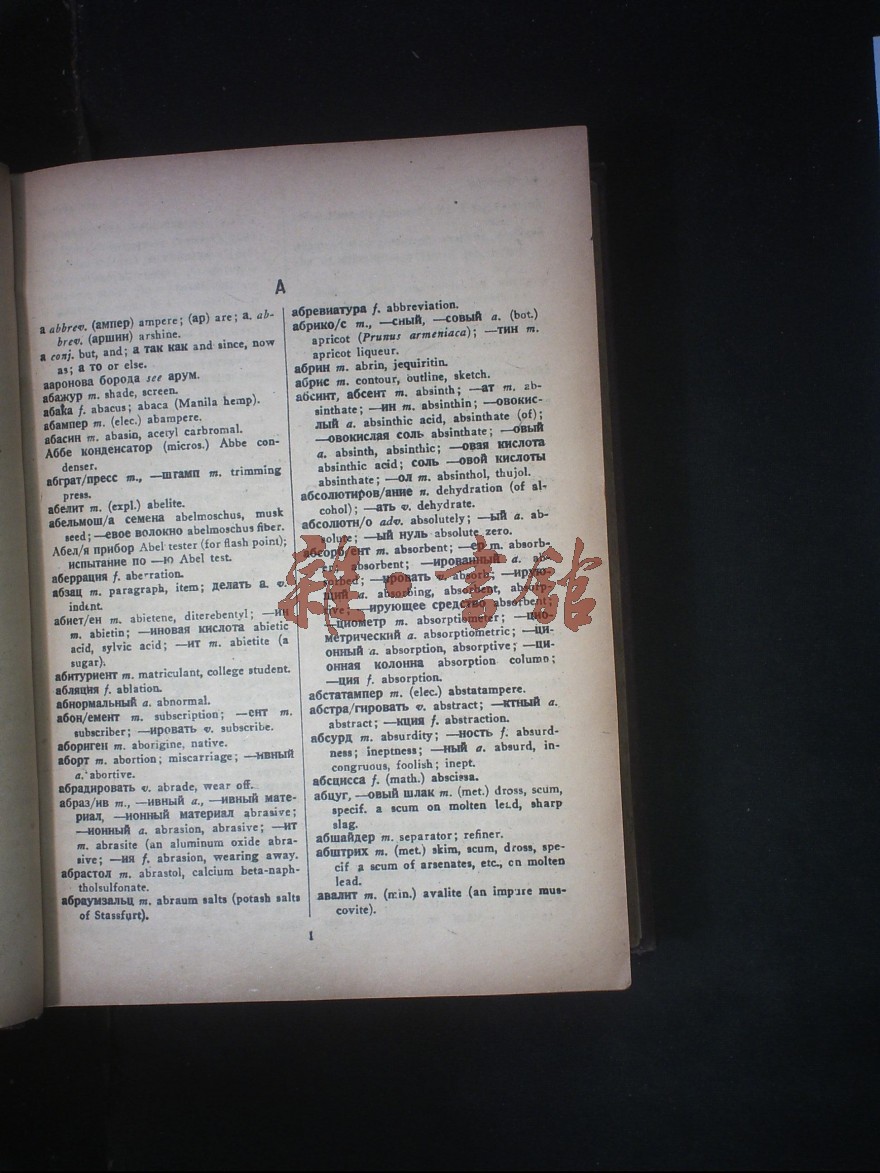 А
а abbrev. (ампер) ampere; (ар) are; а. ab-
brev. (аршин) arshine.
а conj. but, and; а так как and since, now
as; а то or else.
ааронова борода see арум.
абажур m. shade, screen.
абака f. abacus; abaca (Manila hemp).
абампер m. (elec.) abampere.
абасин m. abasin, acetyl carbromal.
Аббе конденсатор (micros.) Abbe con-
denser.
абграт/пресс m., —штамп m. trimming
press.
абелит m. (expl.) abelite.
абельмош/а семена abelmoschus, musk
seed; —евое волокно abelmoschus fiber.
Абел/я прибор Abel tester (for flash point);
испытание по —ю Abel test.
аберрация f. aberration.
абзац m. paragraph, item; делать а. v.
indent.
абиет/ен m. abietene, diterebentyl; —ин
m. abietin; —иновая кислота abietic
acid, sylvic acid; —ит m. abietite (a
sugar).
абитуриент m. matriculant, college student.
абляция f. ablation.
абнормальный a. abnormal.
абон/емент m. subscription; —ент m.
subscriber; —ировать v. subscribe.
абориген m. aborigine, native.
аборт m. abortion; miscarriage; —ивный
a. abortive.
абрадировать v. abrade, wear off.
абраз/ив m., —ивный a., —ивный мате-
риал, —ионный материал abrasive;
—ионный a. abrasion, abrasive; —ит
m. abrasite (an aluminum oxide abra-
sive; —ия f. abrasion, wearing away.
абрастол m. abrastol, calcium beta-naph-
tholsulfonate.
абраумзальц m. abraum salts (potash salts
of Stassfurt).
абревиатура f. abbreviation.
абрико/с m., —сный, —совый a. (bot.)
apricot (Prunus armeniaca); —тин m.
apricot liqueur.
абрин m. abrin, jequiritin.
абрис m. contour, outline, sketch.
абсинт, абсент m. absinth; —ат m. ab-
sinthate; —ин m. absinthin; —овокис-
лый a. absinthic acid, absinthate (of);
—овокислая соль absinthate; —овый
a. absinth, absinthic; —овая кислота
absinthic acid; соль —овой кислоты
absinthate; —ол m. absinthol, thujol.
абсолютиров/ание n. dehydration (of al-
cohol); —ать v. dehydrate.
абсолютн/о adv. absolutely; —ый a. ab-
solute; —ый нуль absolute zero.
абсорб/ент m. absorbent; —ер m. absorb-
er, absorbent; —ированный a. ab-
sorbed; —ировать v. absorb; —ирую-
щий a. absorbing, absorbent, absorp-
tive; —ирующее средство absorbent;
—циометр m. absorptiometer; —цио-
метрический a. absorptiometric; —ци-
онный a. absorption, absorptive; —ци-
онная колонна absorption column;
—ция f. absorption.
абстатампер m. (elec.) abstatampere.
абстра/гировать v. abstract; —ктный a.
abstract; —кция f. abstraction.
абсурд m. absurdity; —ность f. absurd-
ness; ineptness; —ный a. absurd, in-
congruous, foolish; inept.
абсцисса f. (math.) abscissa.
абцуг, —овый шлак m. (met.) dross, scum,
specif. a scum on molten lead, sharp
slag.
абшайдер m. separator; refiner.
абштрих m. (met.) skim, scum, dross, spe-
cif a scum of arsenates, etc., on molten
lead.
авалит m. (min.) avalite (an impure mus-
covite).
1
雜·書館